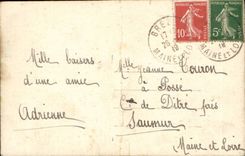 Mille baisers
d'une amie
Adrienne
Mlle Jeanne Touron
à Fosse
Cne de Distré près
Saumur
Maine et Loire
10c
5c
BRÉ
MAINE
MAINE ET LO